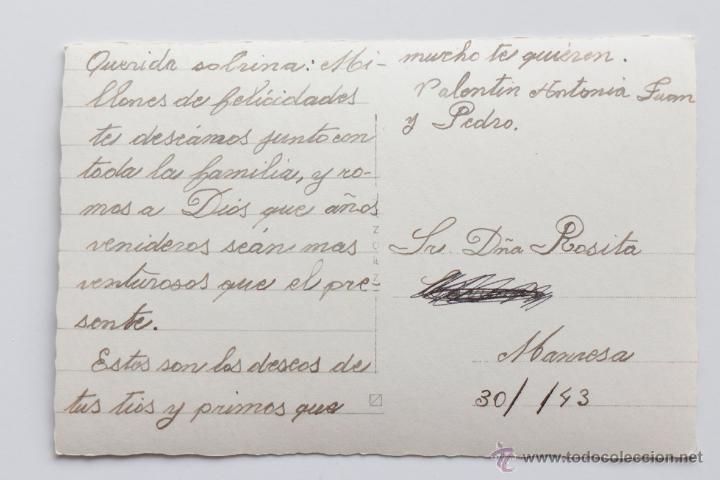 Querida sobrina: Mi-
llones de felicidades
te deseámos junto con
toda la familia, y ro-
mos a Diós que años
venideros seán mas
venturosos que el pre-
sente.
Estos son los deseos de
tus tios y primos que
mucho te quieren.
Valentin Antonia Juan
y Pedro.
Sr. Dña Rosita
Manresa
30/ /43
todocoleccion
www.todocoleccion.net